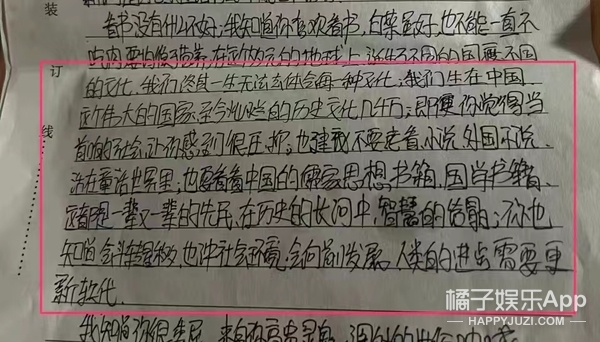 装
订
线
看书没有什么不好;我知道你喜欢看书,白菜虽好,也不能一直不
吃肉,要均衡营养,在这个多元的地球上,派生不同的国度不同
的文化,我们终其一生无法去体会每一种文化;我们生在中国
这个伟大的国家,至今灿烂的历史文化几千万;即便你觉得当
前的社会让你感到很压抑;也建议不要老看小说、外国小说、
活在童话世界里;也要看看中国的儒家思想,书籍、国学书籍、
这都是一辈又一辈的先民,在历史的长河中,智慧的结晶;你也
知道会斗转星移,也许社会环境会向前发展,人类的进步需要更
新软代.
我知道你很委屈,来自你高密
橘子娱乐App
HAPPYJUZI.COM